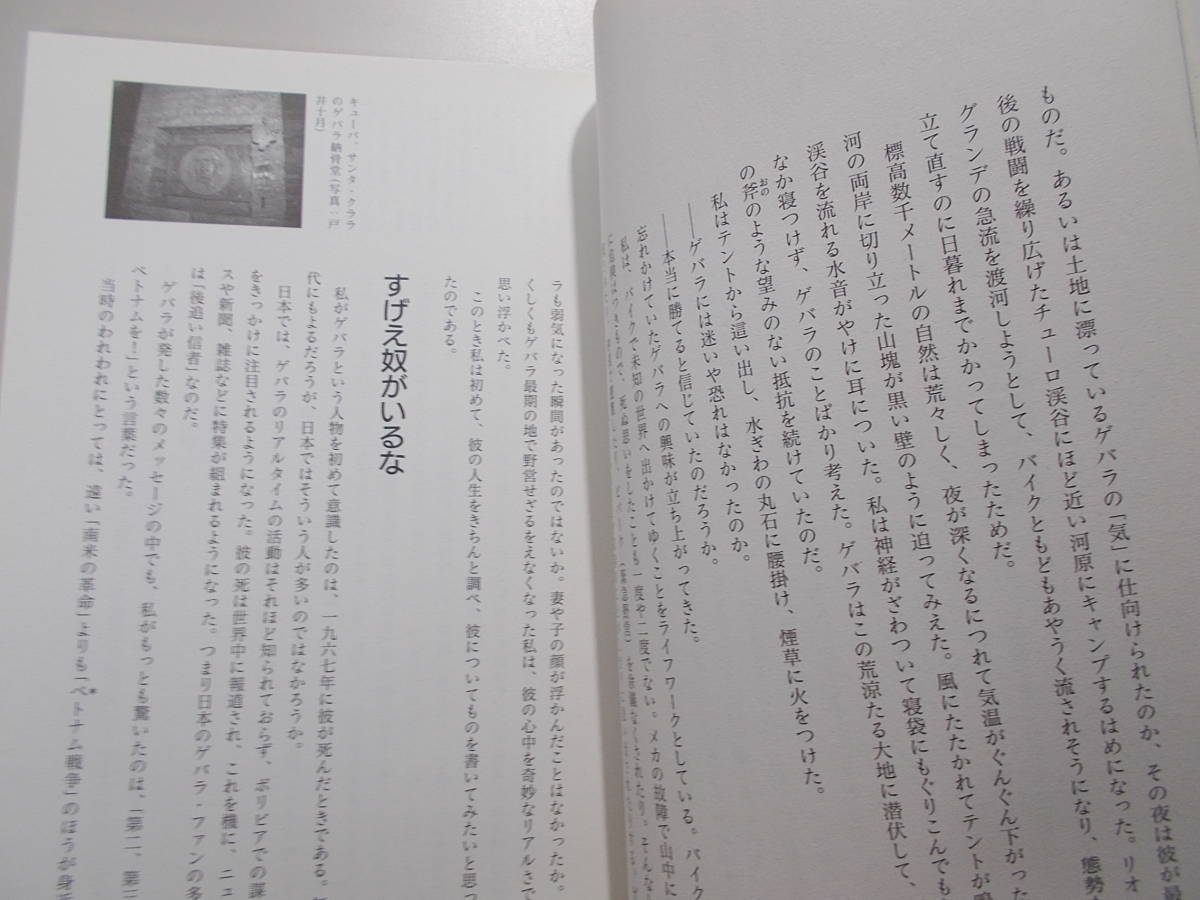 ものだ。あるいは土地に漂っているゲバラの「気」に仕向けられたのか、その夜は彼が最
後の戦闘を繰り広げたチューロ渓谷にほど近い河原にキャンプするはめになった。リオ
グランデの急流を渡河しようとして、バイクともどもあやうく流されそうになり、態勢
立て直すのに日暮れまでかかってしまったためだ。
標高数千メートルの自然は荒々しく、夜が深くなるにつれて気温がぐんぐん下がった
河の両岸に切り立った山塊が黒い壁のように迫ってみえた。風にたたかれてテントが鳴
渓谷を流れる水音がやけに耳についた。私は神経がざわついて寝袋にもぐりこんでも
なか寝つけず、ゲバラのことばかり考えた。ゲバラはこの荒涼たる大地に潜伏して、
の斧おののような望みのない抵抗を続けていたのだ。
私はテントから這い出し、水ぎわの丸石に腰掛け、煙草に火をつけた。
――ゲバラには迷いや恐れはなかったのか。
――本当に勝てると信じていたのだろうか。
忘れかけていたゲバラへの興味が立ち上がってきた。
私は、バイクで未知の世界へ出かけてゆくことをライフワークとしている。バイク
死ぬ思いをしたことも一度や二度でない。メカの故障で山中に
を余儀なくされたり。そんな
ラも弱気になった瞬間があったのではないか。妻や子の顔が浮かんだことはなかったか。
くしくもゲバラ最期の地で野営せざるをえなくなった私は、彼の心中を奇妙なリアルさで
思い浮かべた。
このとき私は初めて、彼の人生をきちんと調べ、彼についてものを書いてみたいと思っ
たのである。
すげえ奴がいるな
私がゲバラという人物を初めて意識したのは、一九六七年に彼が死んだときである。
代にもよるだろうが、日本ではそういう人が多いのではなかろうか。
日本では、ゲバラのリアルタイムの活動はそれほど知られておらず、ボリビアでの謀
をきっかけに注目されるようになった。彼の死は世界中に報道され、これを機に、ニュ
スや新聞、雑誌などに特集が組まれるようになった。つまり日本のゲバラ・ファンの多
は「後追い信者」なのだ。
ゲバラが発した数々のメッセージの中でも、私がもっとも驚いたのは、「第二、第三
ベトナムを!」という言葉だった。
当時のわれわれにとっては、遠い「南米の革命」よりも「ベ*トナム戦争」のほうが身近
キューバ、サンタ・クララ
のゲバラ納骨堂(写真:戸
井十月)